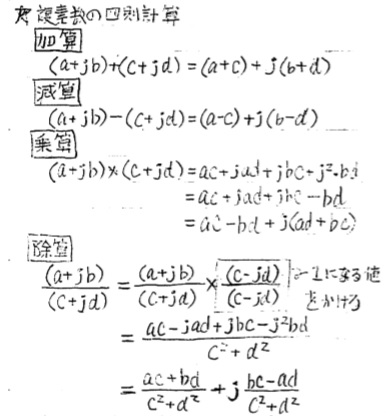 複素数の四則計算
加算
(a+jb)+(c+jd)=(a+c)+j(b+d)
減算
(a+jb)-(c+jd)=(a-c)+j(b-d)
乗算
(a+jb)×(c+jd)=ac+jad+jbc+j²・bd
=ac+jad+jbc-bd
=ac-bd+j(ad+bc)
除算
(a+jb)/(c+jd) = (a+jb)/(c+jd) × (c-jd)/(c-jd) 1になる値をかける
= (ac-jad+jbc-j²bd)/(c²+d²)
= (ac+bd)/(c²+d²) + j (bc-ad)/(c²+d²)